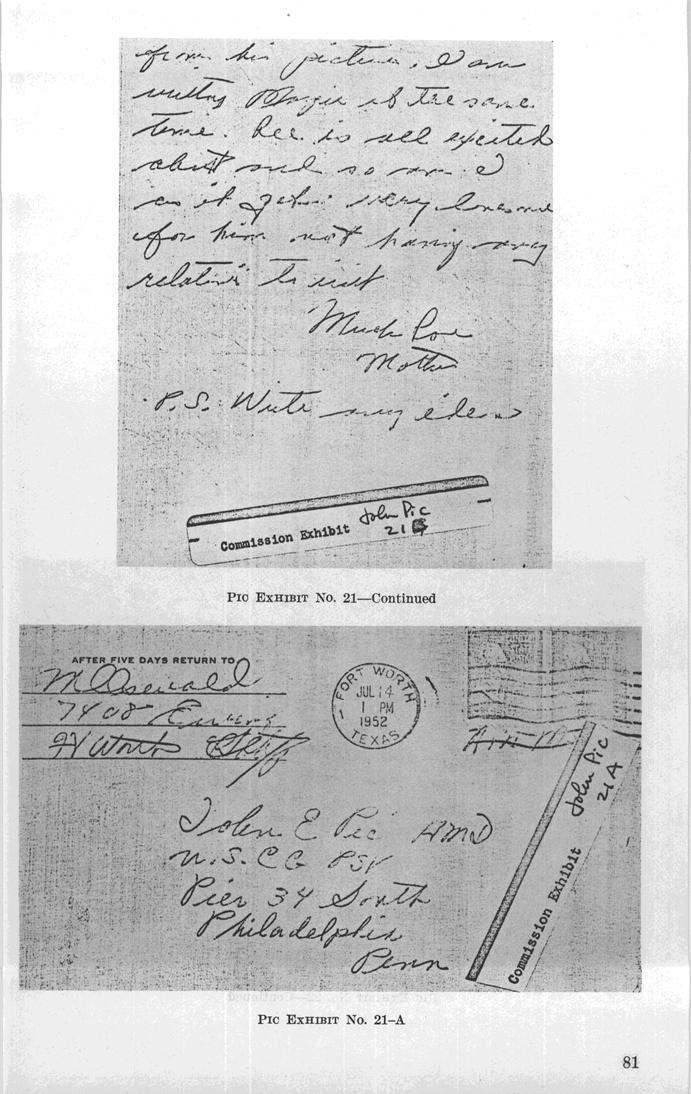 from his picture. I am
writing Margie at the same
time. Lee is all excited
about and so am I
as it gets very lonesome
for him not having any
relative to visit
Much Love
Mother
P.S. Write any ideas
Commission Exhibit John Pic
21
PIC EXHIBIT NO. 21—Continued
AFTER FIVE DAYS RETURN TO
M Oswald
7408 Ewing
Ft Worth
FORT WORTH
JUL 14
1 PM
1952
TEXAS
Air M
John Pic
21 A
Commission Exhibit
John E Pic HM3
U.S.CG PSU
Pier 34 South
Philadelphia
Penn
PIC EXHIBIT NO. 21–A
81